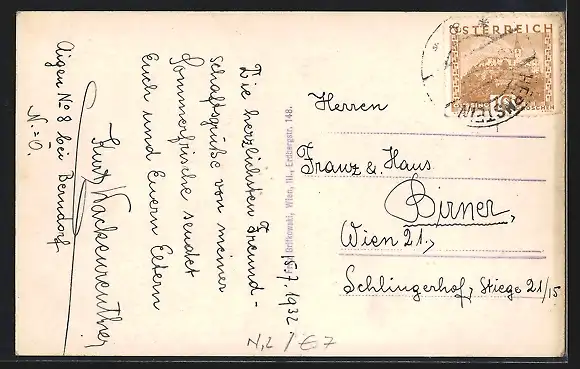 Die herzlichsten Freund-
schaftsgrüße von meiner
Sommerfrische sendet
Euch und Euern Eltern
Kurt Wackenreuther
Aigen No 8 bei Berndorf
N.=Ö.
15/7. 1932
Britkowski, Wien, III., Erdbergstr. 148.
ÖSTERREICH
10
Herren
Franz & Hans
Birner,
Wien 21.,
Schlingerhof, Stiege 21/15